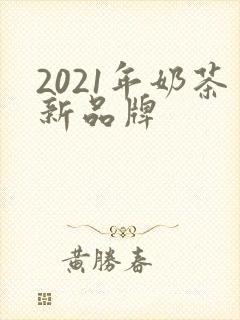 2021年奶茶
新品牌
黄勝春